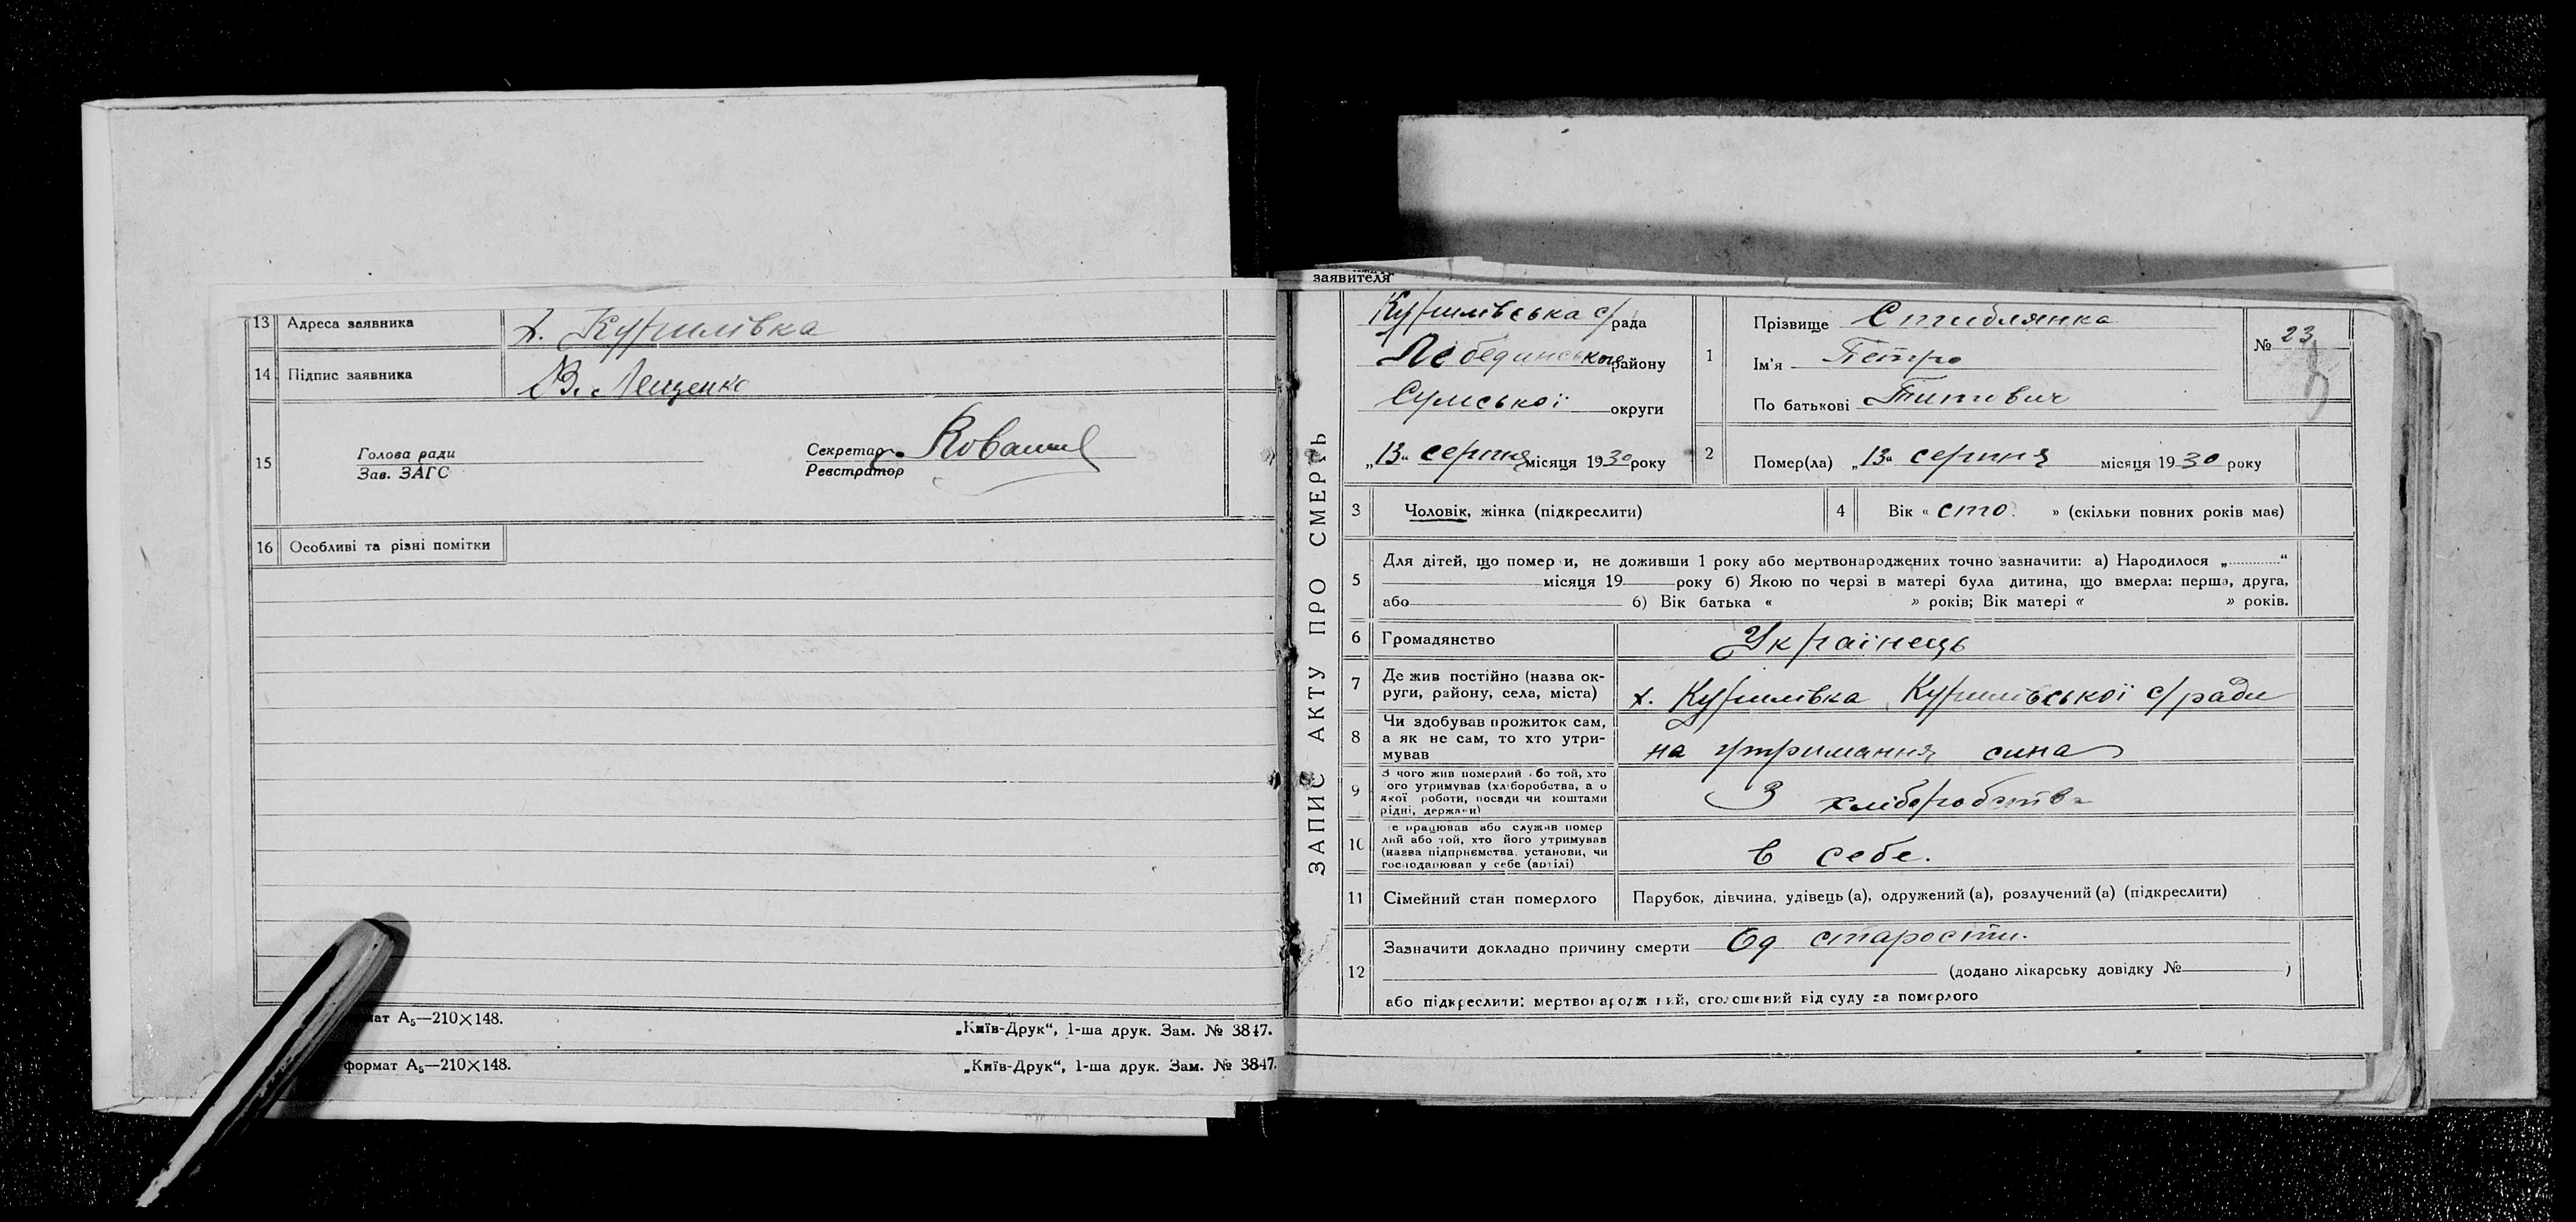 13 Адреса заявника х. Курилівка
14 Підпис заявника В. Лещенко
15 Голова ради
Зав. ЗАГС
Секретар
Реєстратор
16 Особливі та різні помітки
мат А₅—210×148. „Київ-Друк“, 1-ша друк. Зам. № 3847.
формат А₅—210×148. „Київ-Друк“, 1-ша друк. Зам. № 3847.
заявителя
ЗАПИС АКТУ ПРО СМЕРТЬ
Курилівська с/рада
Лебединського району
Сумської округи
„13“ серпня місяця 1930 року
1 Прізвище Стиблянка
Ім'я Петро
По батькові Титович
№ 23
2 Помер(ла) „13“ серпня місяця 1930 року
3 Чоловік, жінка (підкреслити)
4 Вік « сто. » (скільки повних років має)
5 Для дітей, що помер и, не доживши 1 року або мертвонароджених точно зазначити: а) Народилося „ “
місяця 19 року б) Якою по черзі в матері була дитина, що вмерла: перша, друга,
або б) Вік батька « » років; Вік матері « » років.
6 Громадянство Українець
7 Де жив постійно (назва ок-
руги, району, села, міста) х. Курилівка Курилівської с/ради
8 Чи здобував прожиток сам,
а як не сам, то хто утри-
мував на утримання сина
9 З чого жив померлий або той, хто
ого утримував (хліборобства, а о
якої роботи, посади чи коштами
рідні, держави) З хліборобства
10 е працював або служив помер
лий або той, хто його утримував
(назва підприємства, установи, чи
господарював у себе (артілі) в себе.
11 Сімейний стан померлого Парубок, дівчина, удівець (а), одружений (а), розлучений (а) (підкреслити)
12 Зазначити докладно причину смерти Од старости.
(додано лікарську довідку № )
або підкреслити: мертвонароджений, оголошений від суду за померлого